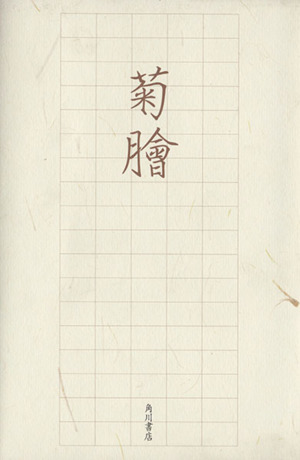 菊膾
角川書店